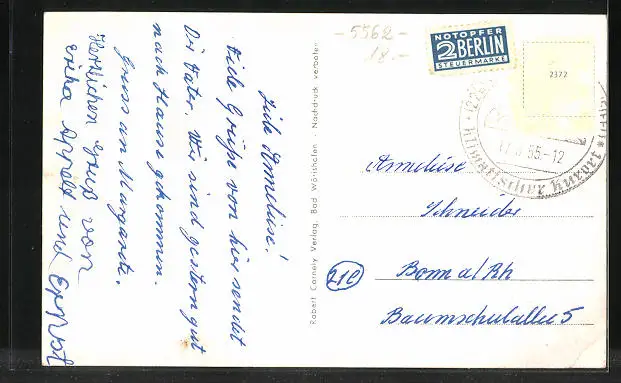 Liebe Anneliese!
Viele Grüße von hier sendet
Dir Vater. Wir sind gestern gut
nach Hause gekommen.
Gruss an Margarete.
Herzlichen Gruß von
Erika Appelt und Ernst
Robert Cornely Verlag, Bad Wörishofen - Nachdruck verboten
- 5562 -
18.-
NOTOPFER
2 BERLIN
STEUERMARKE
2372
55.-12
Anneliese
Schneider
21c
Bonn a/Rh
Baumschulallee 5